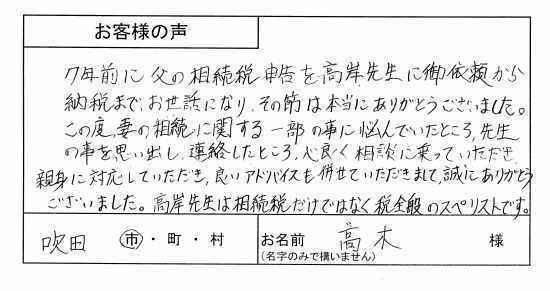 お客様の声
7年前に父の相続税申告を高岸先生に御依頼から
納税まで、お世話になり、その節は本当にありがとうございました。
この度、妻の相続に関する一部の事に悩んでいたところ、先生
の事を思い出し、連絡したところ、心良く相談に乗っていただき、
親身に対応していただき、良いアドバイスも併せていただきまして、誠にありがとう
ございました。高岸先生は相続税だけではなく税全般のスペリストです。
吹田 市・町・村 お名前 高木 様
(名字のみで構いません)